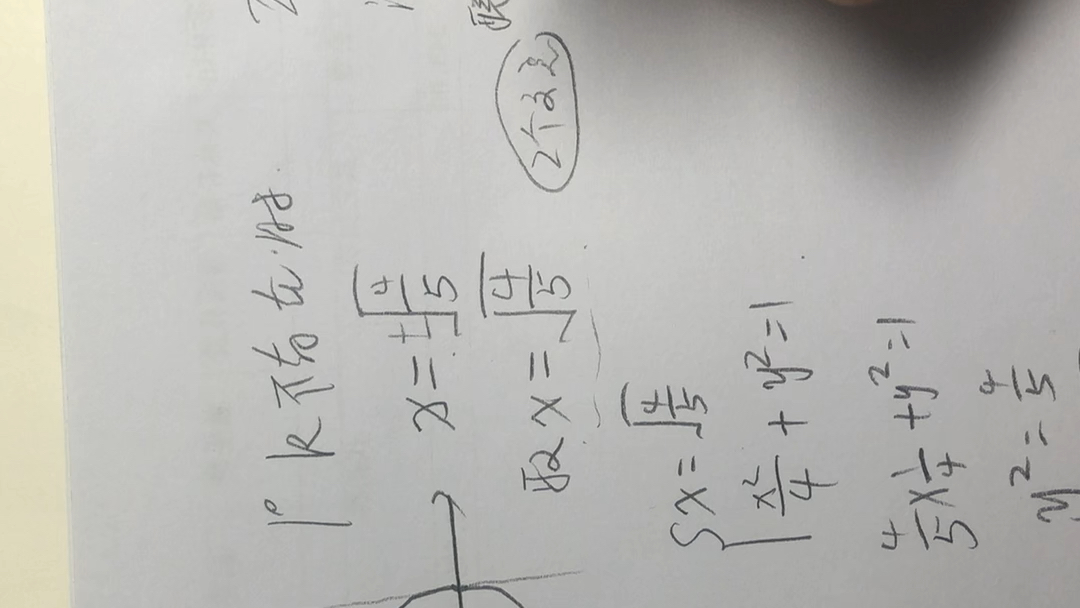 1° k不存在时.
x=±√(4/5)
取 x=√(4/5)
2个交点
{x=√(4/5)
x²/4+y²=1
4/5×1/4+y²=1
y²=4/5